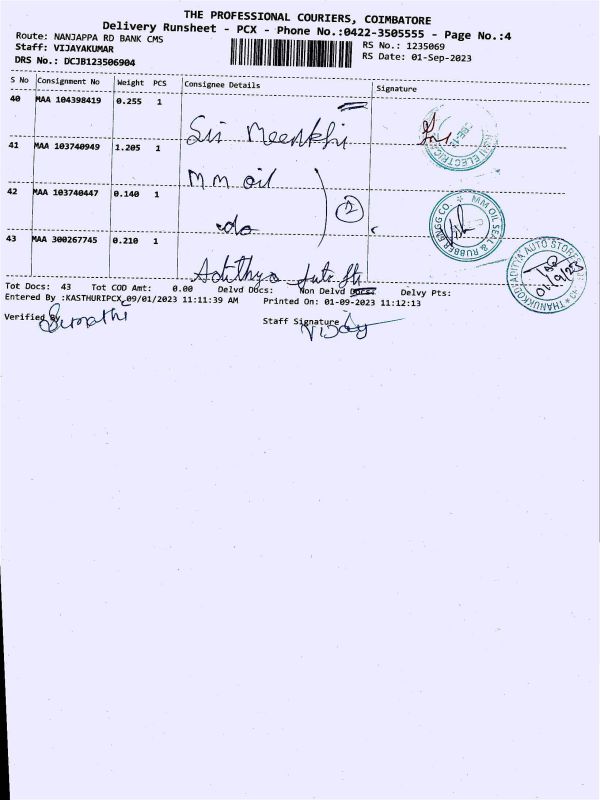 THE PROFESSIONAL COURIERS, COIMBATORE
Delivery Runsheet - PCX - Phone No.:0422-3505555 - Page No.:4
Route: NANJAPPA RD BANK CMS
RS No.: 1235069
Staff: VIJAYAKUMAR
RS Date: 01-Sep-2023
DRS No.: DCJB123506904
S No Consignment No Weight PCS Consignee Details Signature
40 MAA 104398419 0.255 1
Sri Meenkhi
41 MAA 103740949 1.205 1
M M oil
42 MAA 103740447 0.140 1
do
2
MM OIL SEAL & RUBBER ENGG CO
43 MAA 300267745 0.210 1
Adithya Auto St
ADITYA AUTO STORES
01/9/23
Tot Docs: 43 Tot COD Amt: 0.00 Delvd Docs: Non Delvd Docs: Delvy Pts:
Entered By :KASTHURIPCX,09/01/2023 11:11:39 AM Printed On: 01-09-2023 11:12:13
Verified By
Staff Signature
Vijay